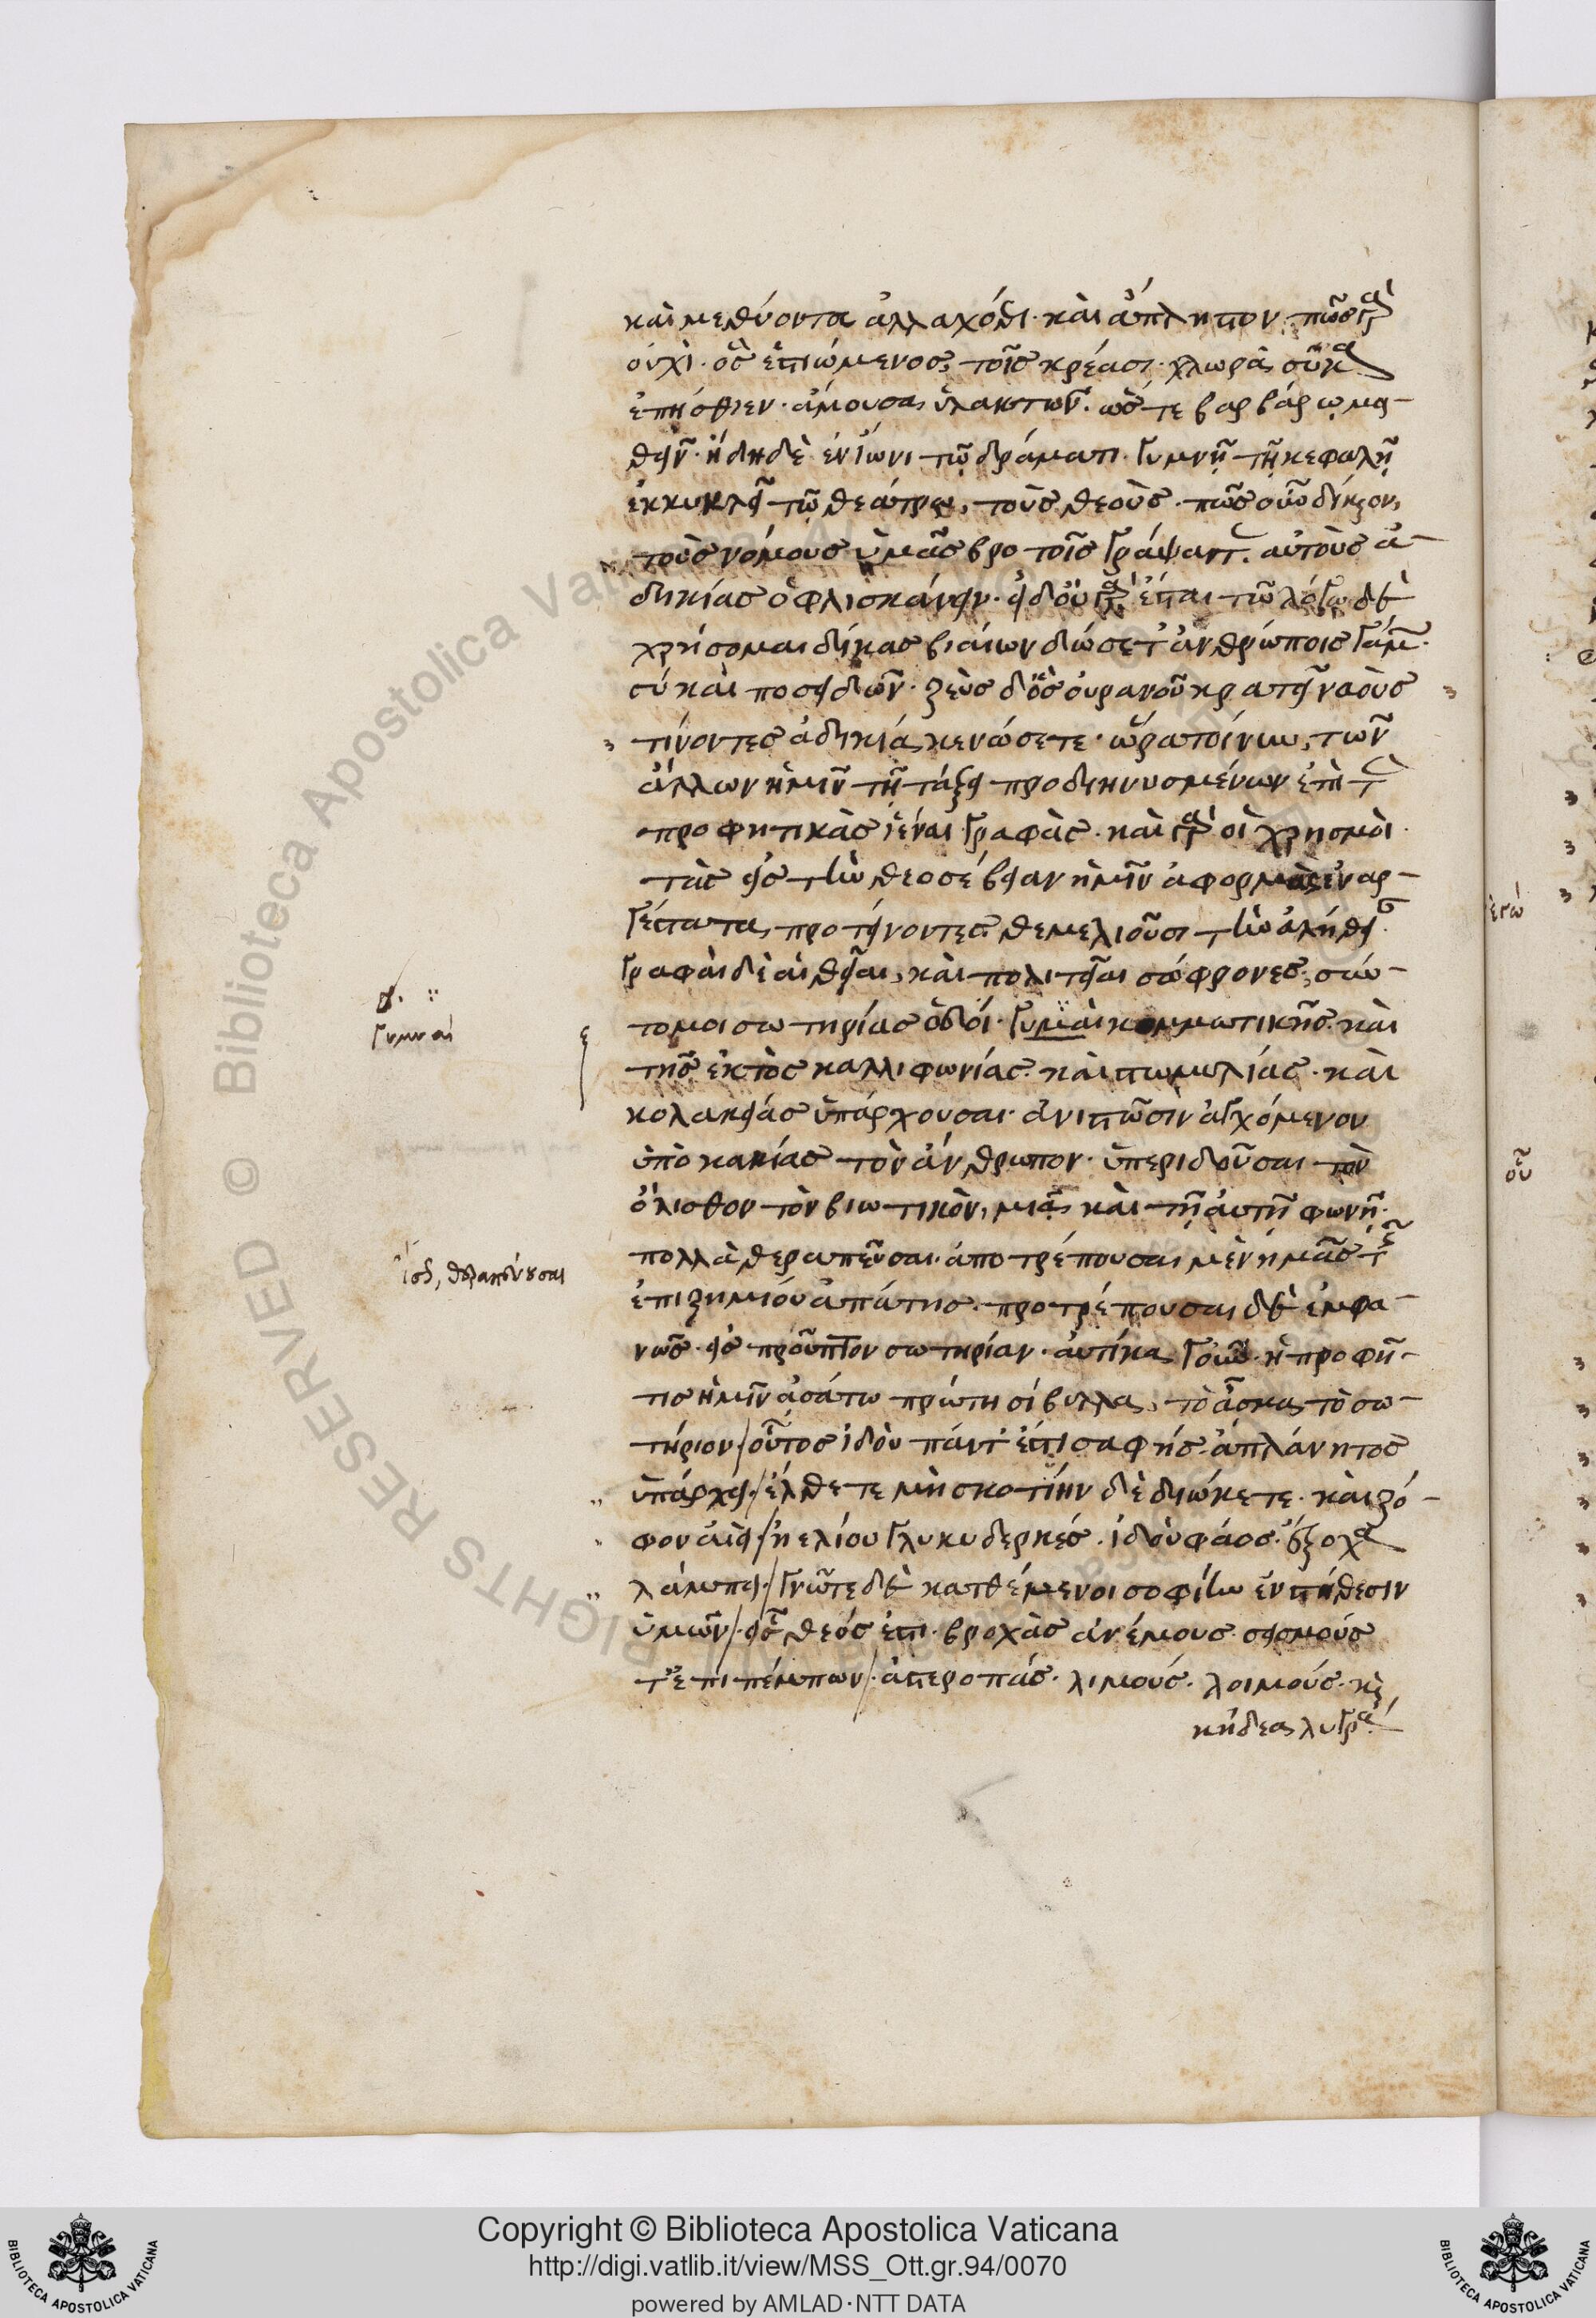 καὶ μεθύοντα ἀλλαχόθι· καὶ ἄπληστον· πῶς γὰρ
οὐχὶ· ὃς ἑστιώμενος, τοῖς κρέασι· χλωρὰ σῦκα
ἐπήσθιεν· ἄμουσα ὑλακτῶν· ὥστε βαρβάρω μα-
θεῖν· ἤδη δὲ ἐν ἴωνι τῷ δράματι· γυμνῇ τῇ κεφαλῇ
ἐκκυκλεῖ τῷ θεάτρῳ, τοὺς θεοὺς· πῶς οὖν δίκαιον,
τοὺς νόμους ὑμᾶς βροτοῖς γράψαντας· αὐτοὺς ἀ-
δικίας ὀφλισκάνειν· εἰ δ' οὐ γὰρ ἔσται τῷ λόγῳ δὲ
χρήσομαι δίκας βιαίων δώσετ' ἀνθρώποις γάμων·
σὺ καὶ ποσειδῶν· ζεὺς δ' ὃς οὐρανοῦ κρατεῖ ναοὺς
τίνοντες ἀδικίας κενώσετε· ὥρα τοίνυν, τῶν
ἄλλων ἡμῖν τῇ τάξει προδιηνυσμένων ἐπὶ τὰς
προφητικὰς ἰέναι γραφὰς· καὶ γὰρ οἱ χρησμοὶ·
τὰς εἰς τὴν θεοσέβειαν ἡμῖν ἀφορμὰς ἐναρ-
γέστατα, προτείνοντες θεμελιοῦσι τὴν ἀλήθειαν·
γραφαὶ δὲ αἱ θεῖαι, καὶ πολιτεῖαι σώφρονες, σύν-
τομοι σωτηρίας ὁδοί· γυμναὶ κομμωτικῆς· καὶ
τῆς ἐκτὸς καλλιφωνίας· καὶ στωμυλίας· καὶ
κολακείας ὑπάρχουσαι· ἀνιστῶσιν ἀγχόμενον
ὑπὸ κακίας τὸν ἄνθρωπον· ὑπεριδοῦσαι τὸν
ὄλισθον τὸν βιωτικόν, μιᾷ καὶ τῇ αὐτῇ φωνῇ·
πολλὰ θεραπεῦσαι· ἀποτρέπουσαι μὲν ἡμᾶς τῆς
ἐπιζημίου ἀπάτης· προτρέπουσαι δὲ ἐμφα-
νῶς· εἰς προὖπτον σωτηρίαν· αὐτίκα γοῦν· ἡ προφῆ-
τις ἡμῖν ᾀσάτω πρώτη σίβυλλα, τὸ ᾆσμα τὸ σω-
τήριον / οὗτος ἰδοὺ πάντ' ἐστὶ σαφὴς ἀπλάνητος
ὑπάρχει· / ἔλθετε μὴ σκοτίην δὲ διώκετε· καὶ ζό-
φον αἰεί· / ἠελίου γλυκυδερκές· ἰδοὺ φάος· ἔξοχα
λάμπει· / γνῶτε δὲ κατθέμενοι σοφίην ἐν στήθεσιν
ὑμῶν / εἷς θεός ἐστι· βροχὰς ἀνέμους σεισμούς
τ' ἐπιπέμπων / ἀστεροπάς· λιμούς· λοιμούς· καὶ
κήδεα λυγρά
γυμναὶ
ἴσ, θεραπεύουσαι
ἐγώ
οὖ
Copyright © Biblioteca Apostolica Vaticana
http://digi.vatlib.it/view/MSS_Ott.gr.94/0070
powered by AMLAD·NTT DATA
BIBLIOTECA APOSTOLICA VATICANA
BIBLIOTECA APOSTOLICA VATICANA